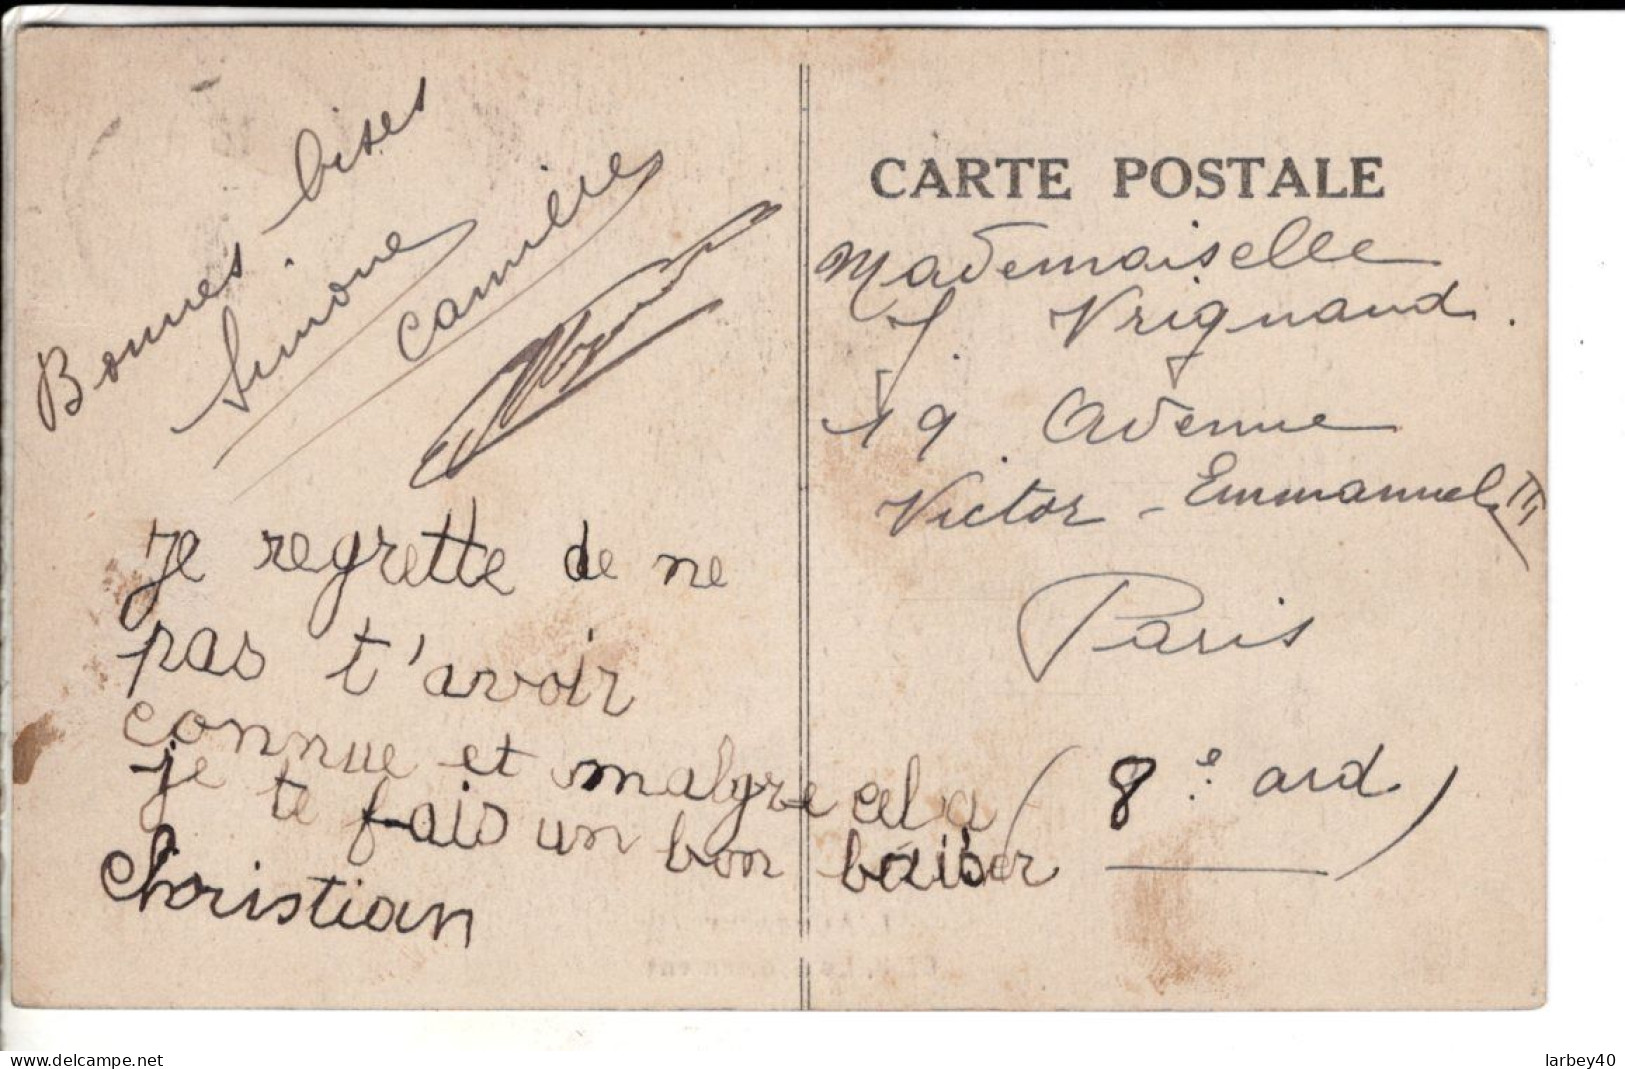 Bonnes bises
Simone
Camille
Je regrette de ne
pas t'avoir
connue et malgre cela
je te fais un bon baiser
Christian
CARTE POSTALE
Mademoiselle
J. Vrignaud.
19 Avenue
Victor-Emmanuel III
Paris
(8e ard)
www.delcampe.net
larbey40